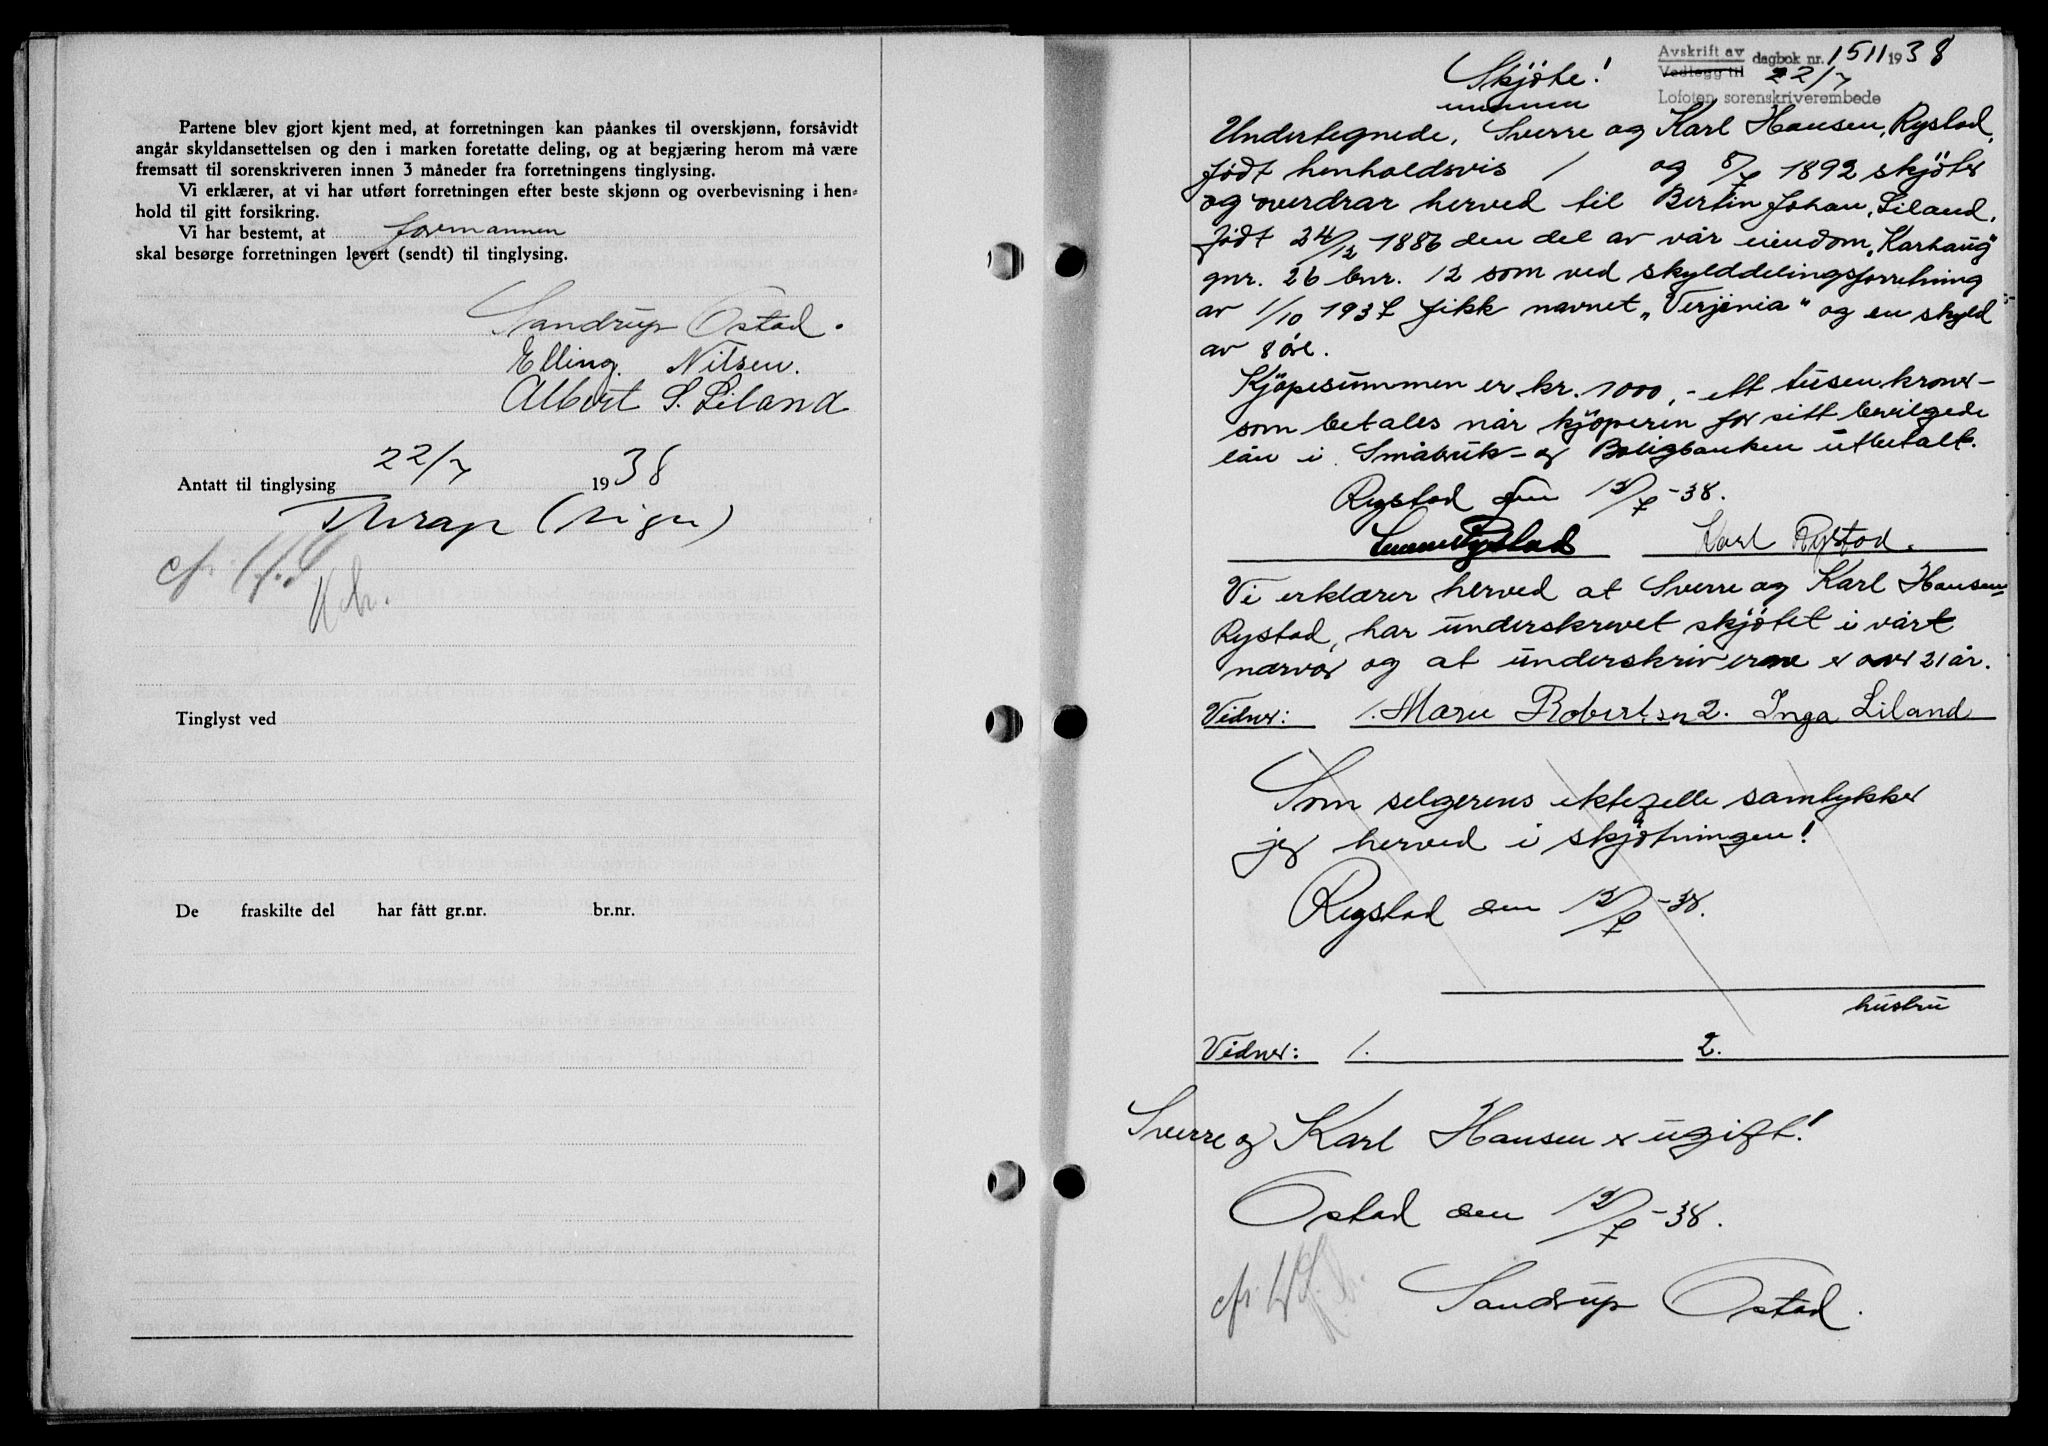 Partene blev gjort kjent med, at forretningen kan påankes til overskjønn, forsåvidt
angår skyldansettelsen og den i marken foretatte deling, og at begjæring herom må være
fremsatt til sorenskriveren innen 3 måneder fra forretningens tinglysing.
Vi erklærer, at vi har utført forretningen efter beste skjønn og overbevisning i hen-
hold til gitt forsikring.
Vi har bestemt, at formannen
skal besørge forretningen levert (sendt) til tinglysing.
Sandrup Ostad.
Elling Nilsen.
Albert S. Liland
Antatt til tinglysing 22/7 1938
Thrap (sign)
Tinglyst ved
De fraskilte del har fått gr.nr. br.nr.
Avskrift av
Vedlegg til
dagbok nr. 1511 1938
22/7
Lofoten sorenskriverembede
Skjöte!
Undertegnede, Sverre og Karl Hansen, Rystad,
født henholdsvis / og 8/7 1892 skjöter
og overdrar herved til Bertin Johan Liland,
født 24/12 1886 den del av vår eiendom "Karhaug"
gnr. 26 bnr. 12 som ved skylddelingsforretning
av 1/10 1937 fikk navnet "Verjinia" og en skyld
av 8 öre.
Kjöpesummen er kr. 1000,- ett tusen kroner-
som betales når kjöperen for sitt bevilgede
lån i Småbruk- og Boligbanken utbetalt.
Rystad den 12/7-38.
Sverre Rystad Karl Rystad.
Vi erklærer herved at Sverre og Karl Hansen-
Rystad, har underskrevet skjötet i vårt
nærvær og at underskriverne er over 21 år.
Vidner: 1. Marie Robertsen 2. Inga Liland
Som selgerens ektefelle samtykker
jeg herved i skjötningen!
Rystad den 12/7-38.
hustru
Vidner: 1. 2.
Sverre og Karl Hansen er ugift!
Ostad den 12/7-38.
Sandrup Ostad.